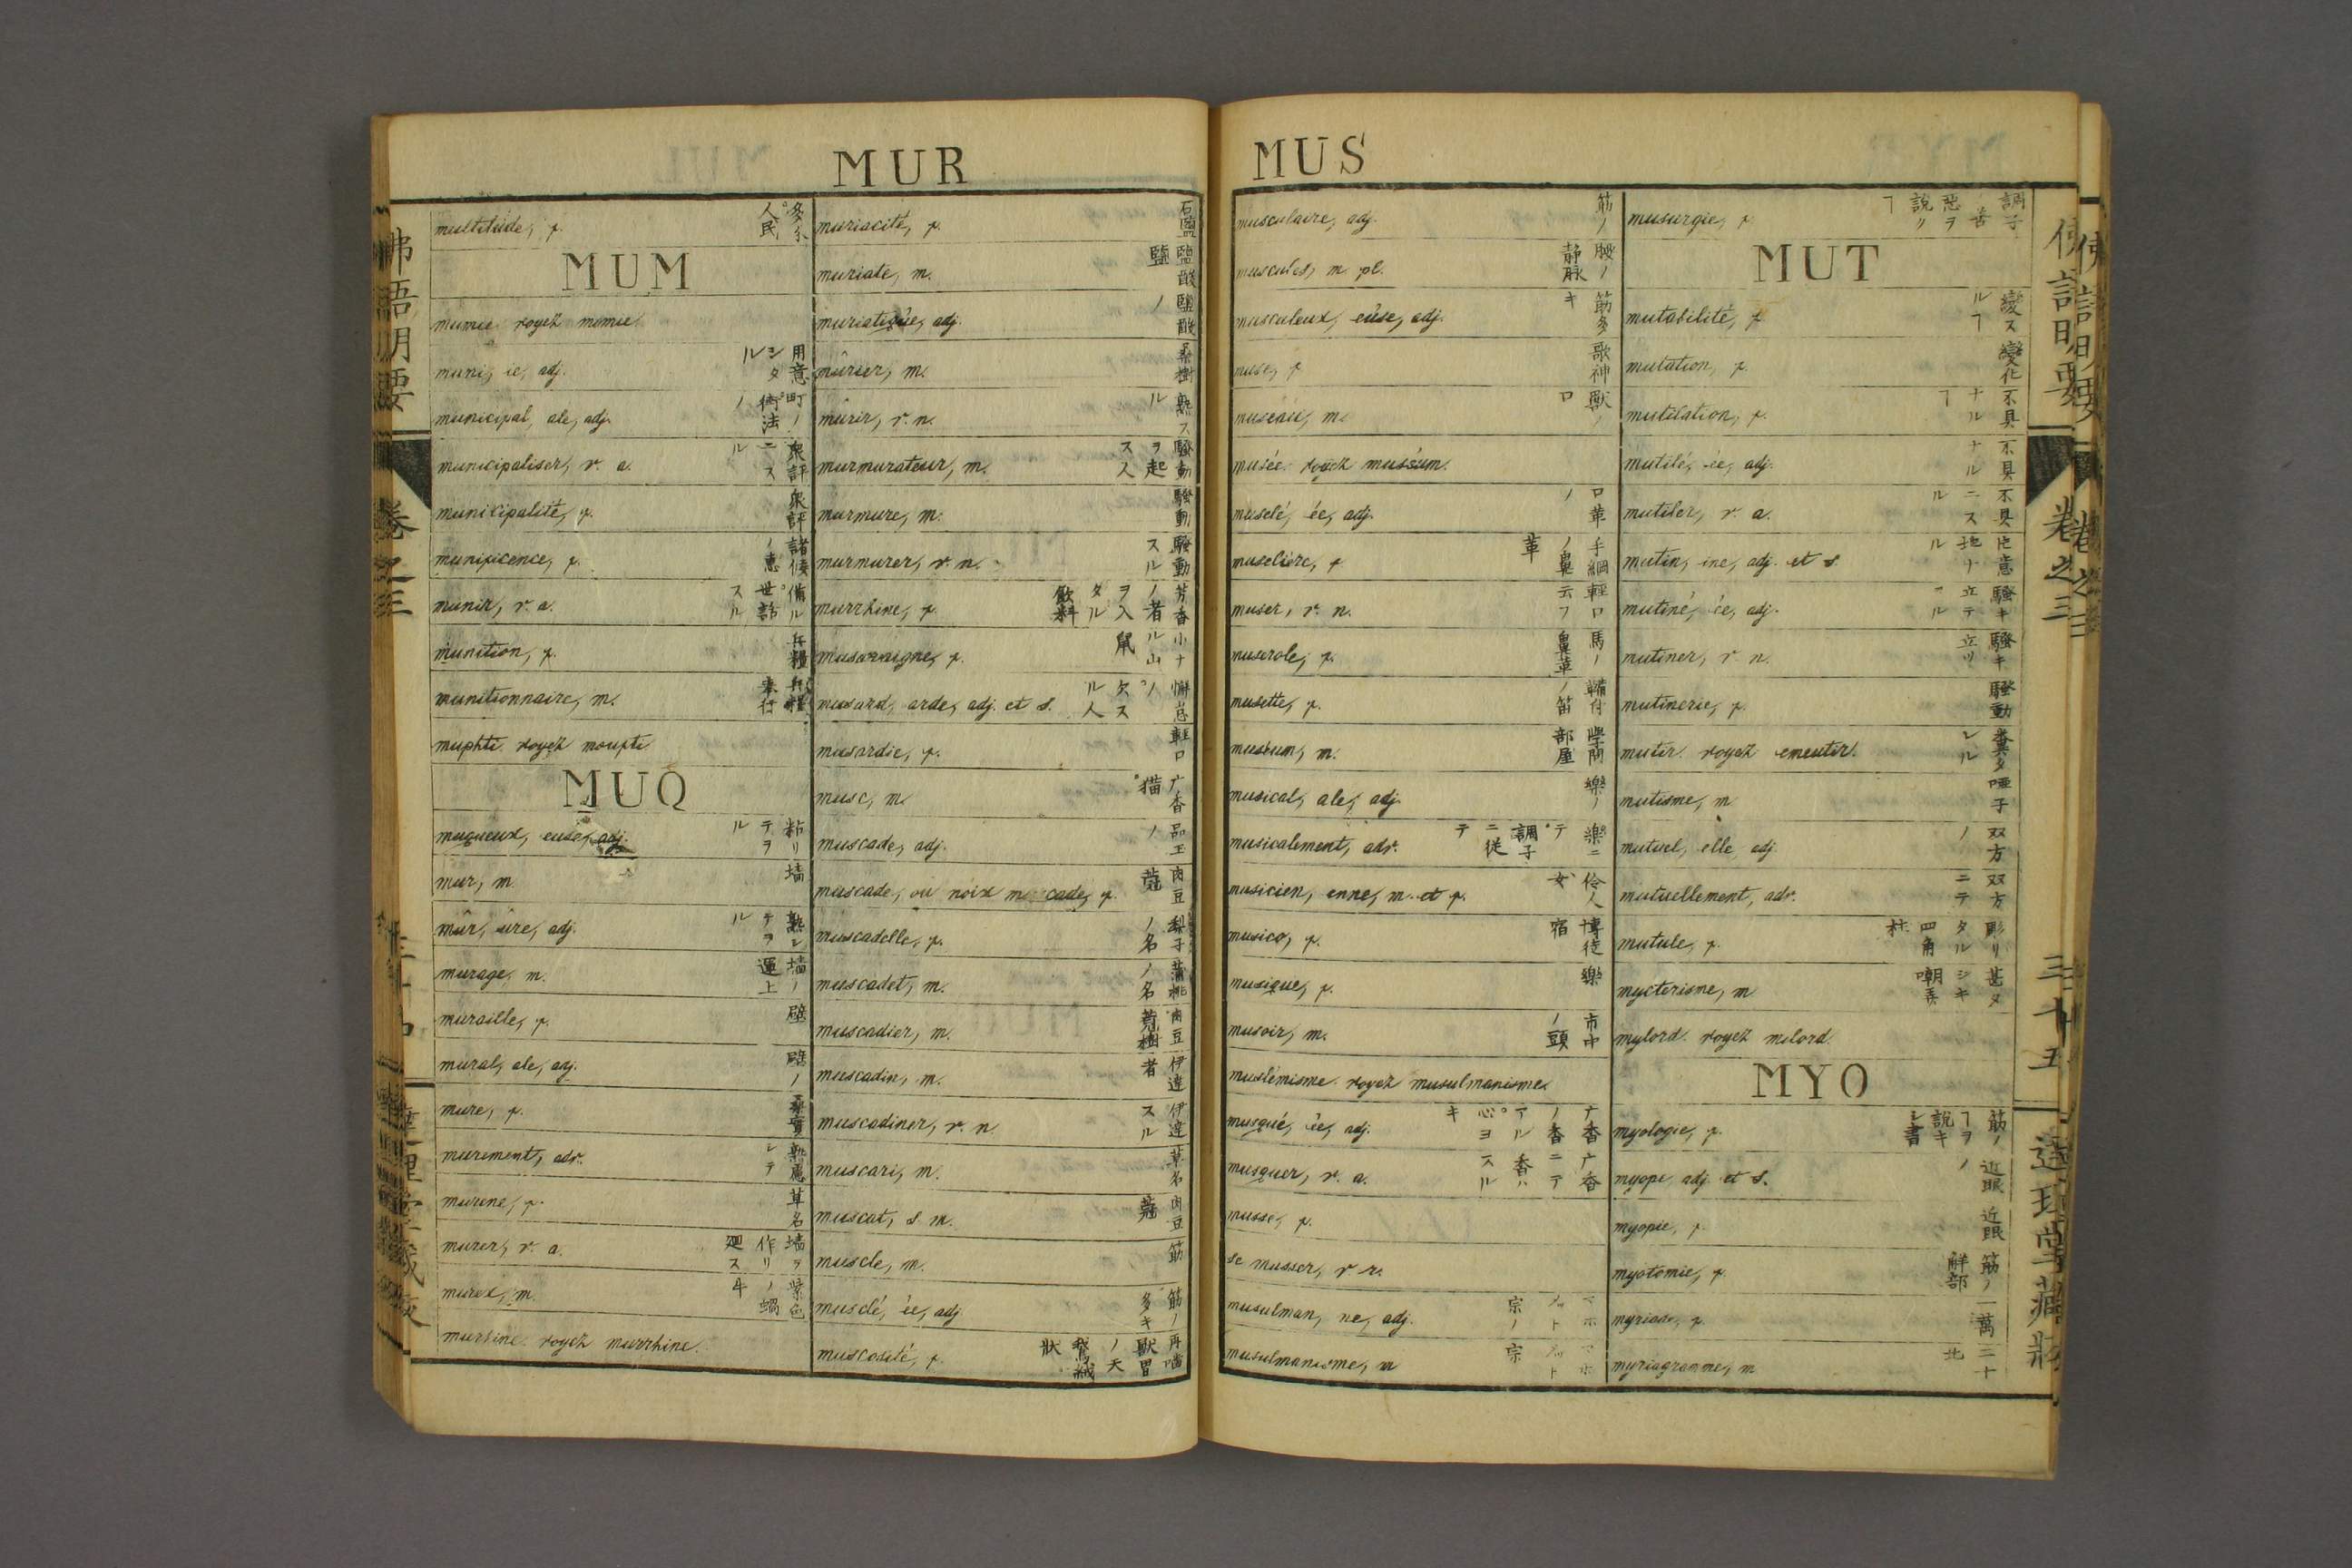 MUR
multitude, f. 多分。人民
MUM
mumie. voyez momie.
muni, ie, adj. 用意シタル
municipal, ale, adj. 町ノ。術法ノ
municipaliser, v. a. 衆評ニスル
municipalité, f. 衆評
munificence, f. 諸侯ノ恵
munir, v. a. 備ル。世話スル
munition, f. 兵糧
munitionnaire, m. 兵糧奉行
muphti. voyez moupti
MUQ
muqueux, euse, adj. 粘リテヲル
mur, m. 墻
mûr, ûre, adj. 熟シテヲル
murage, m. 墻ノ運上
muraille, f. 壁
mural, ale, adj. 壁ノ
mure, f. 桑實
murement, adv. 熟慮シテ
murene, f. 草名
murer, v. a. 墻ヲ作リ廻ス
murex, m. 紫色ノ蝸牛
murrine. voyez murrhine.
muriacité, f. 石鹽
muriate, m. 鹽酸鹽
muriatique, adj. 鹽酸ノ
mûrier, m. 桑樹
mûrir, v. n. 熟スル
murmurateur, m. 騷動ヲ起ス人
murmure, m. 騷動
murmurer, v. n. 騷動スル
murrhine, f. 芳香ノ者ヲ入タル飲料
musaraigne, f. 小ナル山鼠
musard, arde, adj. et s. 懈怠ノ。欠スル人
musardie, f. 軽口
musc, m. 广香猫
muscade, adj. 品玉ノ
muscade, ou noix muscade, f. 肉豆蔲
muscadelle, f. 梨子ノ名
muscadet, m. 蒲桃ノ名
muscadier, m. 肉豆蔲樹
muscadin, m. 伊達者
muscadiner, v. n. 伊達スル
muscari, m. 草名
muscat, s. m. 肉豆蔲
muscle, m. 筋
musclé, ée, adj. 筋ノ多キ
muscosité, f. 再嚙獣胃ノ天鵞絨狀
MUS
musculaire, adj. 筋ノ
muscules, m. pl. 腰ノ静脉
musculeux, euse, adj. 筋多キ
muse, f. 歌神
museau, m. 獸ノ口
musée. voyez muséum.
muselé, ée, adj. 口革ノ
muselière, f. 手綱ノ鼻革
muser, v. n. 軽口云フ
muserole, f. 馬ノ鼻革
musette, f. 鞴付ノ笛
muséum, m. 學問部屋
musical, ale, adj. 樂ノ
musicalement, adv. 樂ニテ。調子ニ従テ
musicien, enne, m. et f. 伶人。女
musico, f. 博徒宿
musique, f. 樂
musoir, m. 市中ノ頭
muslémisme. voyez musulmanisme.
musqué, ée, adj. 广香ノ香アル。心ヨキ
musquer, v. a. 广香ニテ香ハスル
musse, f.
se musser, v. r.
musulman, ne, adj. マホメット宗ノ
musulmanisme, m. マホメット宗
musurgie, f. 調子苦惡ヲ説リヿ
MUT
mutabilité, f. 變スルヿ
mutation, f. 變化
mutilation, f. 不具ナルヿ
mutilé, ée, adj. 不具ナル
mutiler, v. a. 不具ニスル
mutin, ine, adj. et s.
mutiné, ée, adj. 騷キ立テル
mutiner, v. n. 騷キ立リ
mutinerie, f. 騷動
mutir. voyez emeutir.
mutisme, m. 啞子
mutuel, elle, adj. 双方ノ
mutuellement, adv. 双方ニテ
mutule, f. 彫リタル四角材
mycterisme, m. 甚タシキ嘲弄
mylord. voyez milord.
MYO
myologie, f. 筋ノヿヲ説キシ書
myope, adj. et s. 近眼ノ
myopie, f. 近眼
myotomie, f. 筋ノ解部
myriade, f. 一萬
myriagramme, m.
佛語明要 卷之三
三十五 達理堂藏版